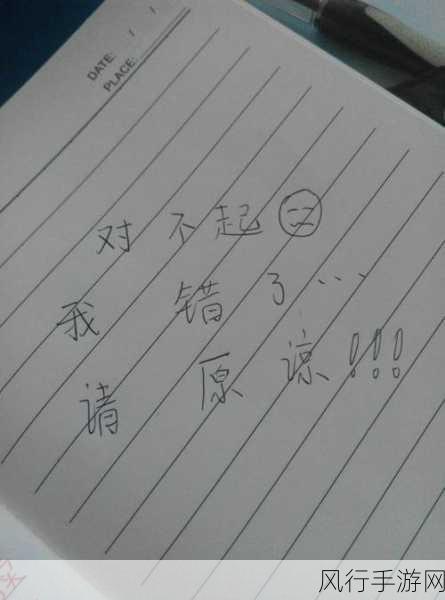 DATE: / /
PLACE:
对不起
我错了…
请原谅!!!
风行手游网